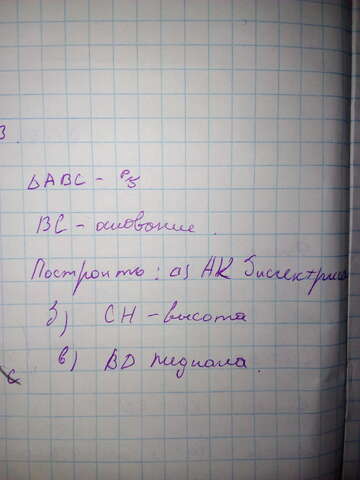 в
△ABC - р/б
BC - основание.
Построить: а) AK биссектриса
б) CH - высота
в) BD медиана.